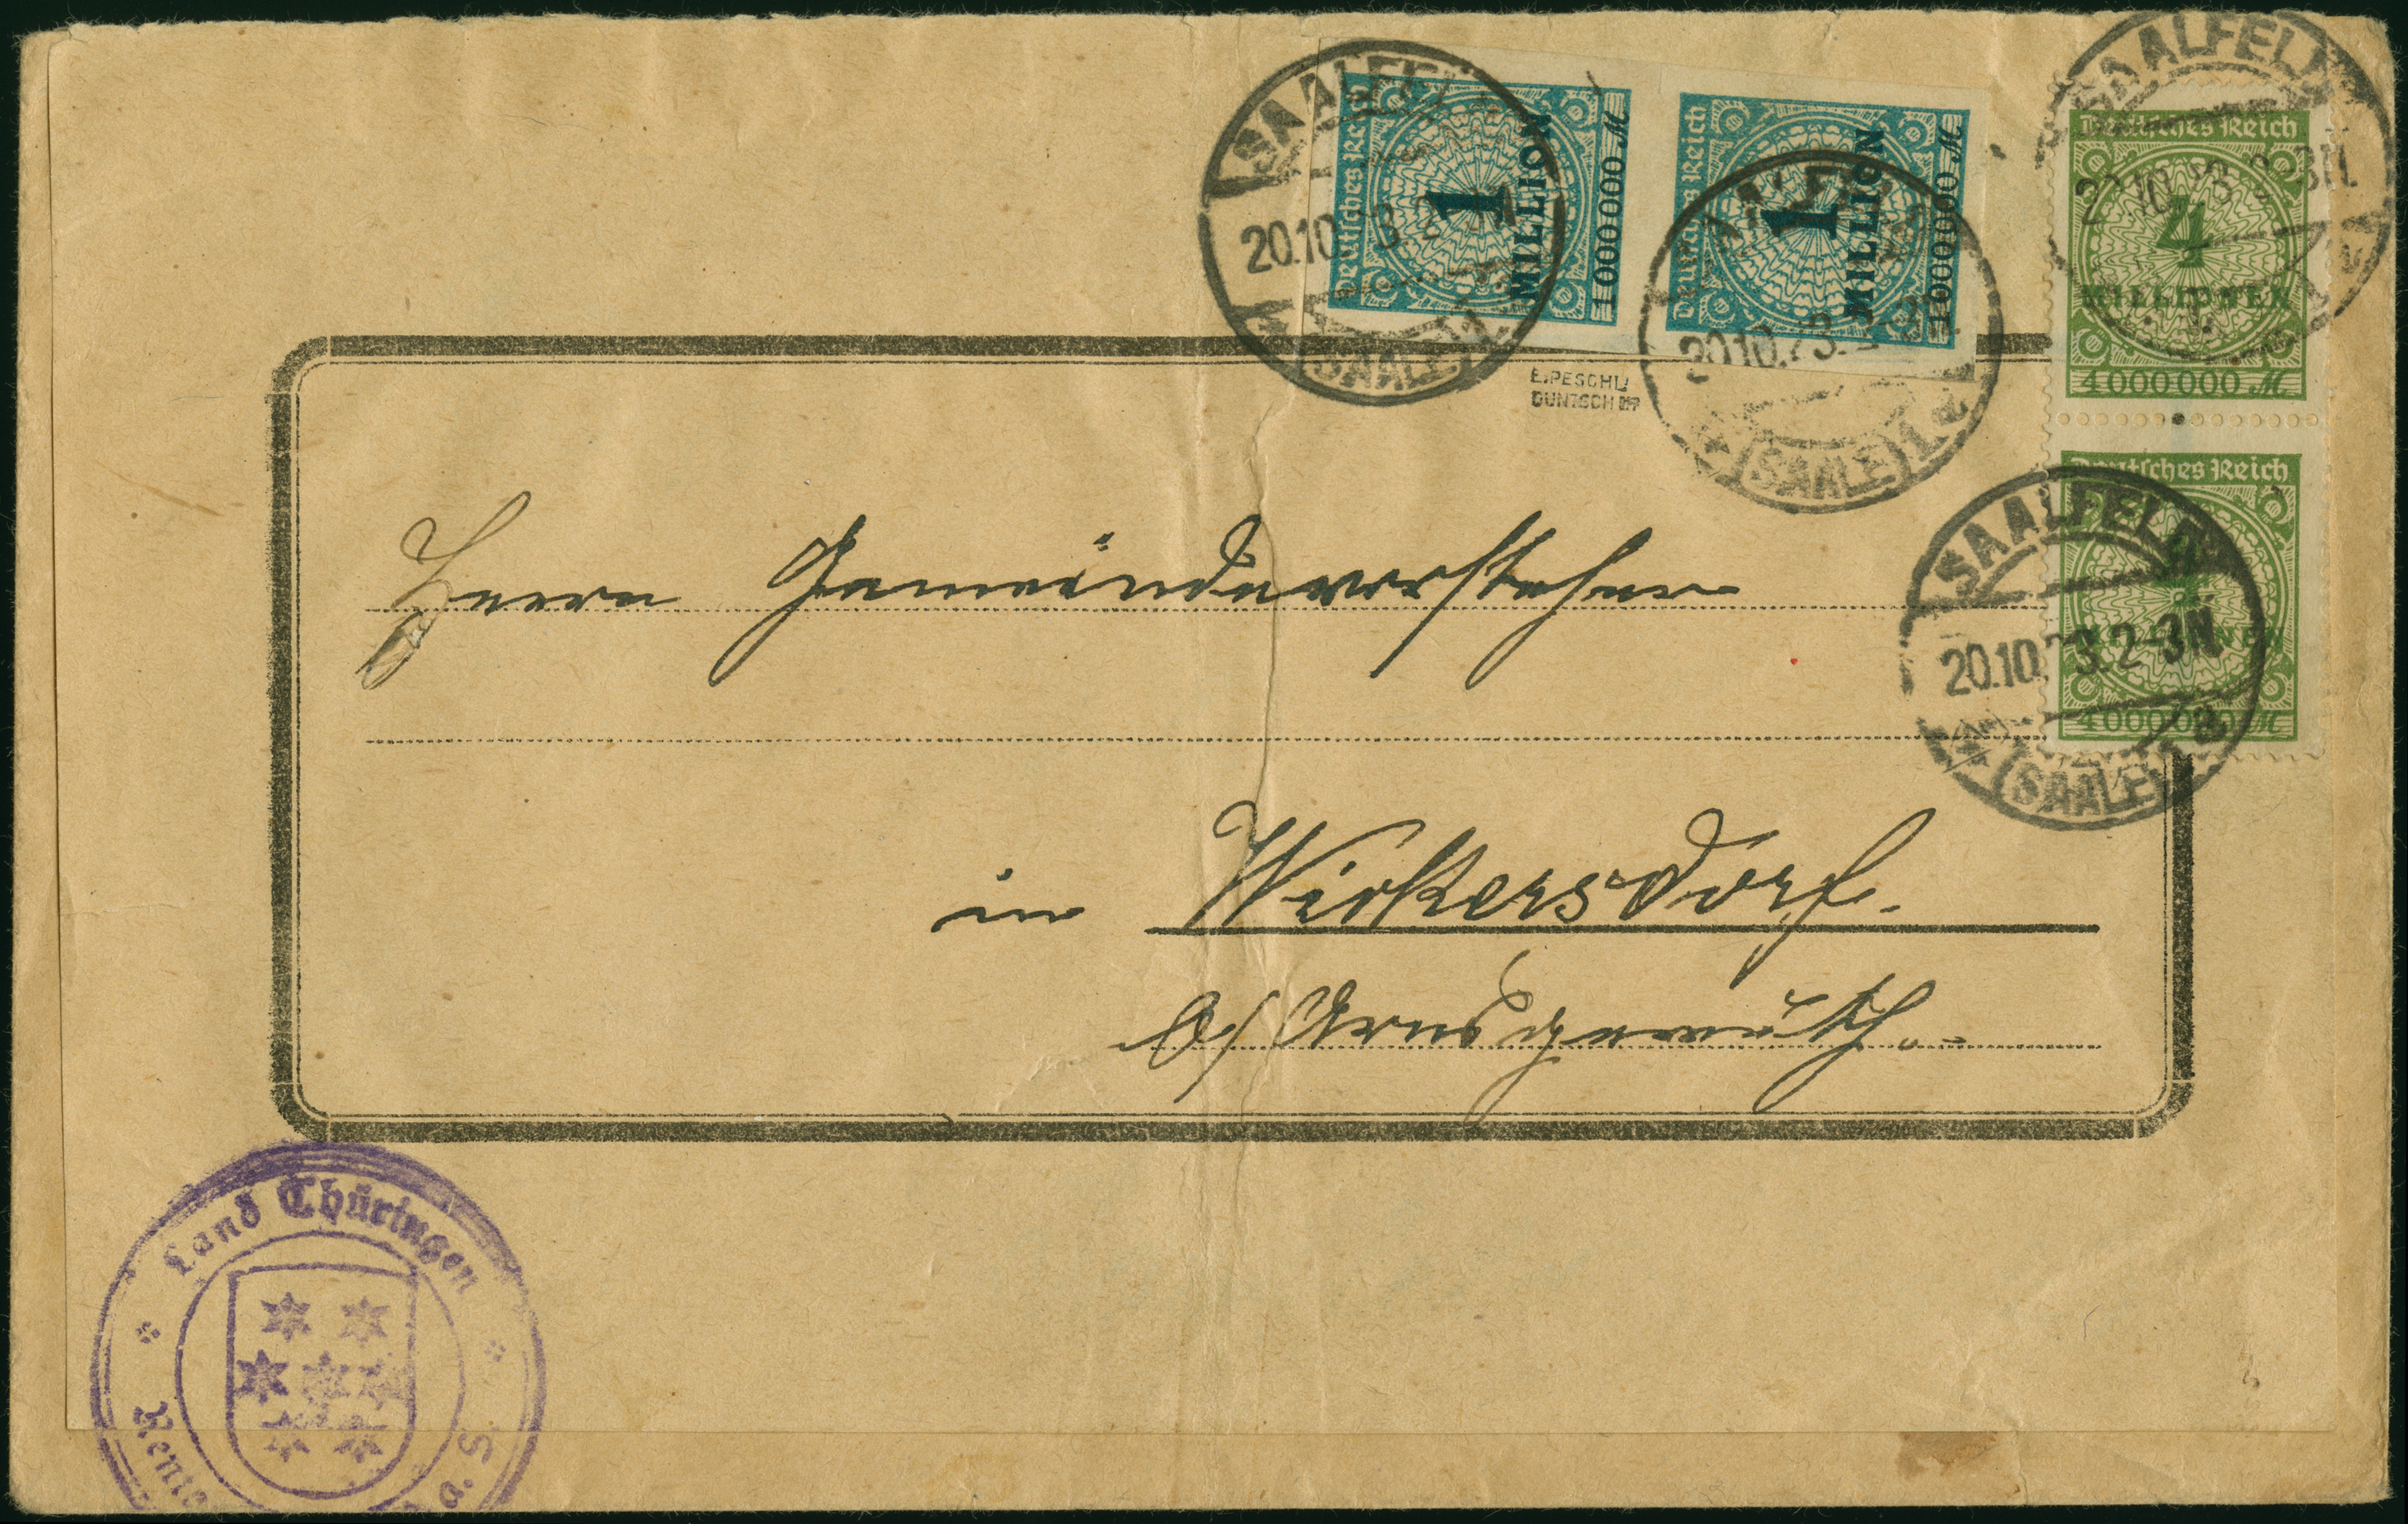 SAALFELD
20.10.23. 2-3N.
(SAALE) 1 a
Deutsches Reich
1
MILLION
1000000 M
Deutsches Reich
1
MILLION
1000000 M
SAALFELD
20.10.23. 2-3N.
(SAALE) 1 a
SAALFELD
20.10.23. 2-3N.
Deutsches Reich
4
MILLIONEN
4000000 M
Deutsches Reich
4
MILLIONEN
4000000 M
SAALFELD
20.10.23. 2-3N.
(SAALE) 1 a
E.PESCHL/
DUNTSCH BPP
Herrn Gemeindevorsteher
in Wickersdorf.
b/ Arnsgereuth.-
Land Thüringen
Rent
S